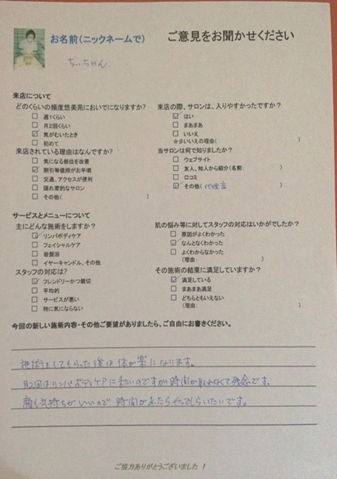 お名前(ニックネームで)
ご意見をお聞かせください
ちぃちゃん
来店について
どのくらいの頻度悠美苑においでになりますか?
□ 週1くらい
□ 月2回くらい
☑ 気がむいたとき
□ 初めて
来店されている理由はなんですか?
□ 気になる部位を改善
☑ 割引等価格がお手頃
□ 交通、アクセスが便利
□ 隠れ家的なサロン
□ その他( )
来店の際、サロンは、入りやすかったですか?
☑ はい
□ まあまあ
□ いいえ
★まいいえの理由( )
当サロンは何で知りましたか?
□ ウェブサイト
□ 友人、知人から紹介(名前: )
□ 口コミ
☑ その他( )
サービスとメニューについて
主にどんな施術をしますか?
☑ リンパボディケア
□ フェイシャルケア
□ 岩盤浴
□ イヤーキャンドル、その他
スタッフの対応は?
☑ フレンドリーかつ親切
□ 平均的
□ サービスが悪い
□ 特に気にならない
肌の悩み等に対してスタッフの対応はいかがでしたか?
□ 原因がよくわかった
☑ なんとなくわかった
□ よくわからなかった
(理由: )
その施術の結果に満足していますか?
☑ 満足している
□ まあまあ満足
□ どちらともいえない
(理由: )
今回の新しい施術内容・その他ご要望がありましたら、ご自由にお書きください。
施術をしてもらった後は体が楽になります。
リンパボディケアに の時間が なくて残念です。
顔も気持ちがいいので 時間があったらやってもらいたいです。
ご協力ありがとうございました!